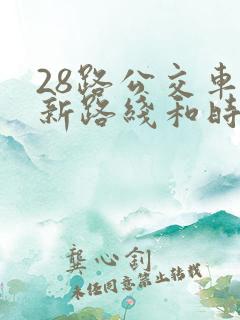 28路公交车
新路线和时
龚心钊
未经同意禁止转载